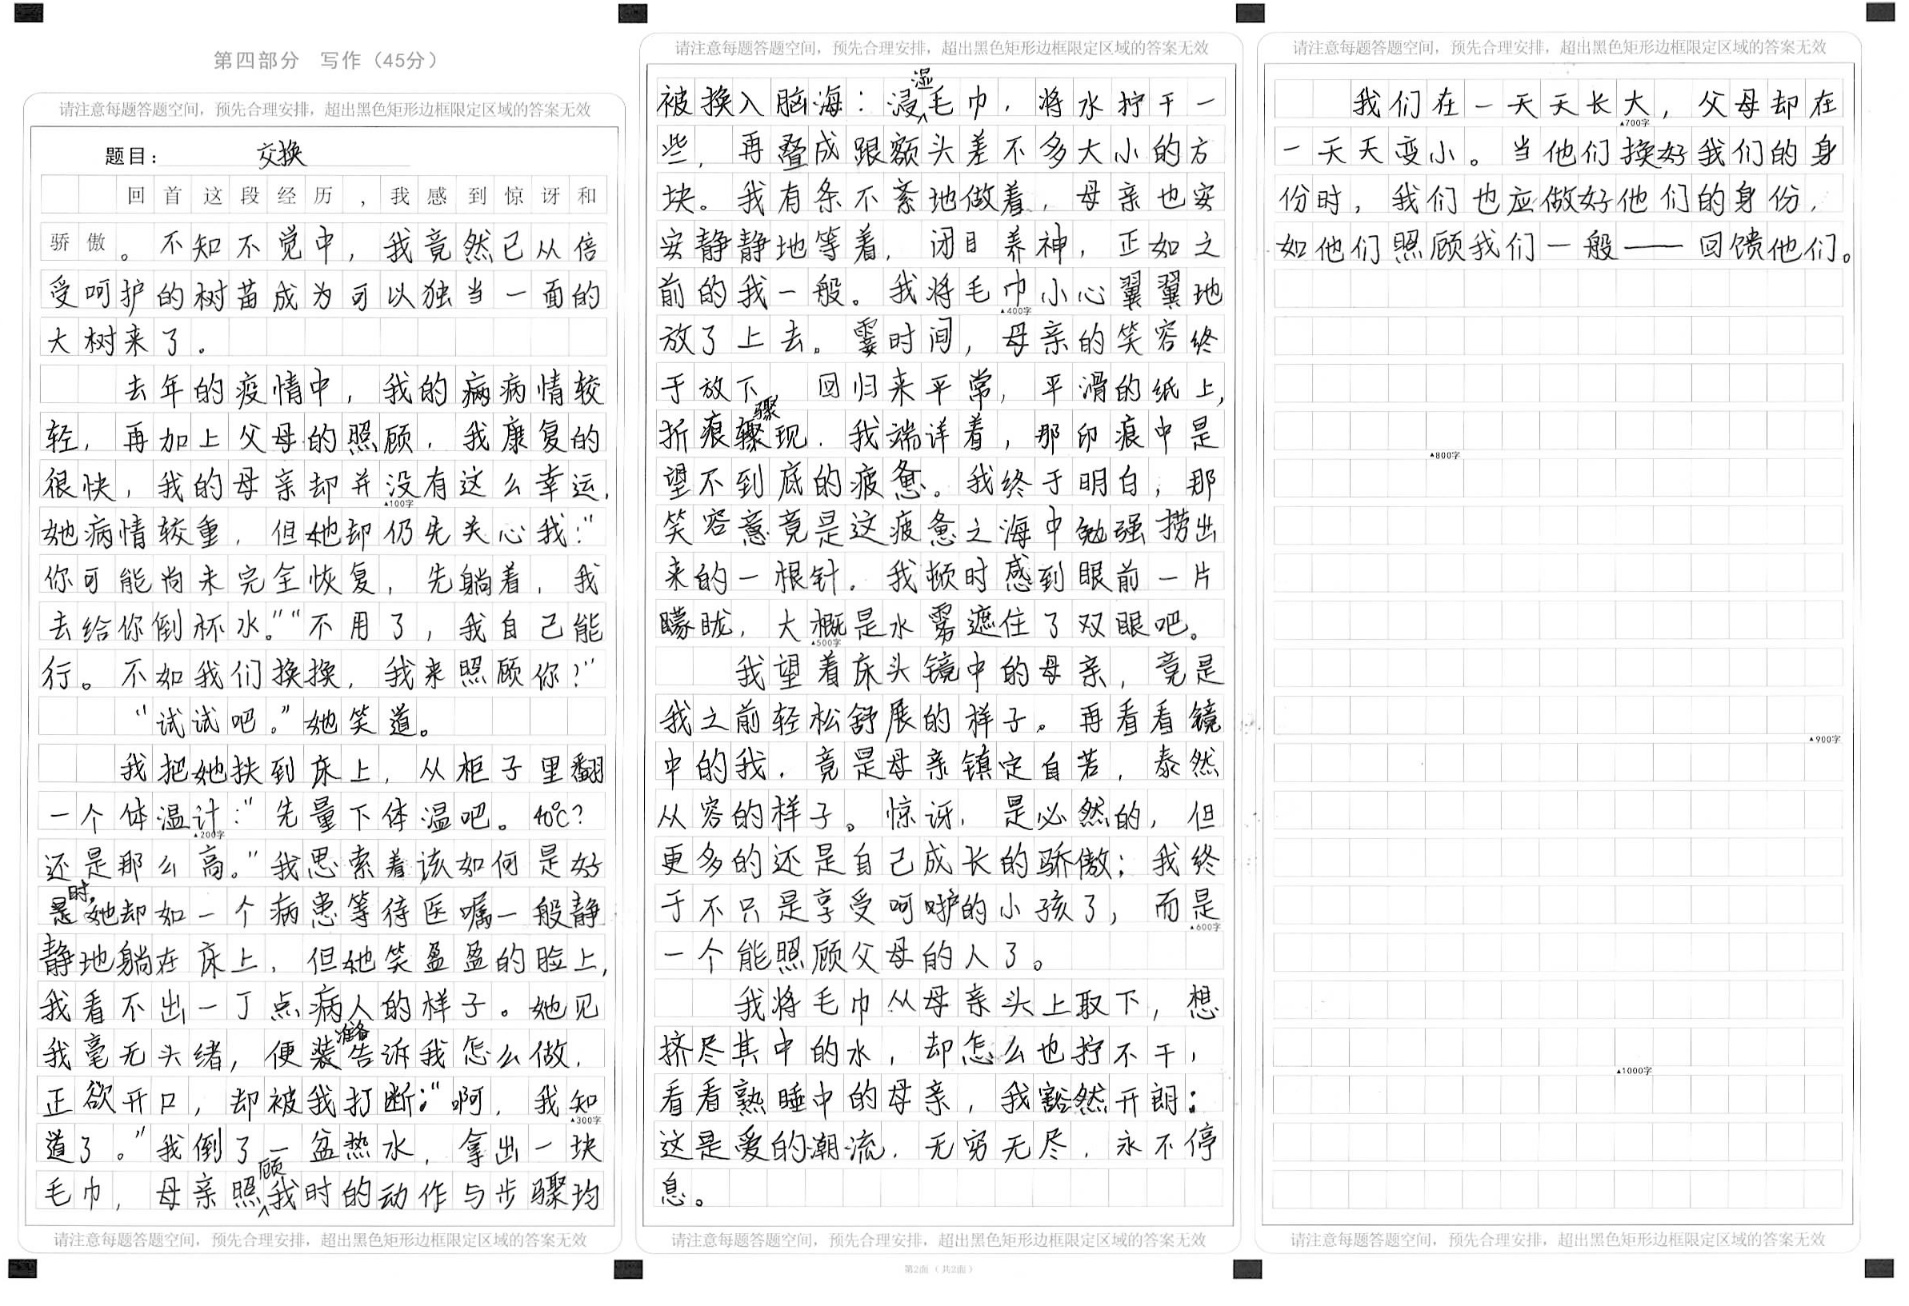 第四部分 写作（45分）
请注意每题答题空间，预先合理安排，超出黑色矩形边框限定区域的答案无效
题目： 交换
回首这段经历，我感到惊讶和
骄傲。不知不觉中，我竟然已从倍
受呵护的树苗成为可以独当一面的
大树来了。
去年的疫情中，我的病病情较
轻，再加上父母的照顾，我康复的
很快，我的母亲却并没有这么幸运，
▲100字
她病情较重，但她却仍先关心我：“
你可能尚未完全恢复，先躺着，我
去给你倒杯水。”“不用了，我自己能
行。不如我们换换，我来照顾你？”
“试试吧。”她笑道。
我把她扶到床上，从柜子里翻
一个体温计：“先量下体温吧。40℃？
▲200字
还是那么高。”我思索着该如何是好
时，她却如一个病患等待医嘱一般静
静地躺在床上，但她笑盈盈的脸上，
我看不出一丁点病人的样子。她见
我毫无头绪，便准备告诉我怎么做，
正欲开口，却被我打断：“啊，我知
▲300字
道了。”我倒了一盆热水，拿出一块
毛巾，母亲照顾我时的动作与步骤均
请注意每题答题空间，预先合理安排，超出黑色矩形边框限定区域的答案无效
请注意每题答题空间，预先合理安排，超出黑色矩形边框限定区域的答案无效
被换入脑海：浸湿毛巾，将水拧干一
些，再叠成跟额头差不多大小的方
块。我有条不紊地做着，母亲也安
安静静地等着，闭目养神，正如之
前的我一般。我将毛巾小心翼翼地
▲400字
放了上去。霎时间，母亲的笑容终
于放下，回归来平常，平滑的纸上，
折痕骤现，我端详着，那印痕中是
望不到底的疲惫。我终于明白，那
笑容意竟是这疲惫之海中勉强捞出
来的一根针。我顿时感到眼前一片
朦胧，大概是水雾遮住了双眼吧。
▲500字
我望着床头镜中的母亲，竟是
我之前轻松舒展的样子。再看看镜
中的我，竟是母亲镇定自若，泰然
从容的样子。惊讶，是必然的，但
更多的还是自己成长的骄傲；我终
于不只是享受呵护的小孩了，而是
▲600字
一个能照顾父母的人了。
我将毛巾从母亲头上取下，想
挤尽其中的水，却怎么也拧不干，
看看熟睡中的母亲，我豁然开朗：
这是爱的潮流，无穷无尽，永不停
息。
请注意每题答题空间，预先合理安排，超出黑色矩形边框限定区域的答案无效
第2面（共2面）
请注意每题答题空间，预先合理安排，超出黑色矩形边框限定区域的答案无效
我们在一天天长大，父母却在
▲700字
一天天变小。当他们换好我们的身
份时，我们也应做好他们的身份，
如他们照顾我们一般——回馈他们。
▲800字
▲900字
▲1000字
请注意每题答题空间，预先合理安排，超出黑色矩形边框限定区域的答案无效